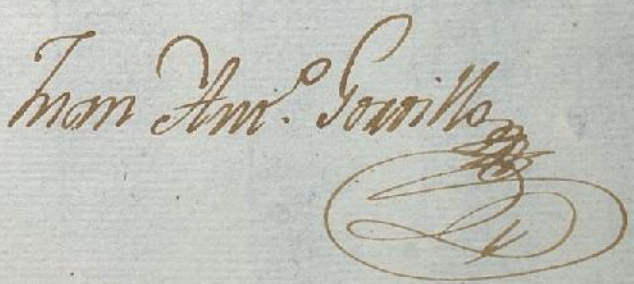 Juan Anto. Gorvilla